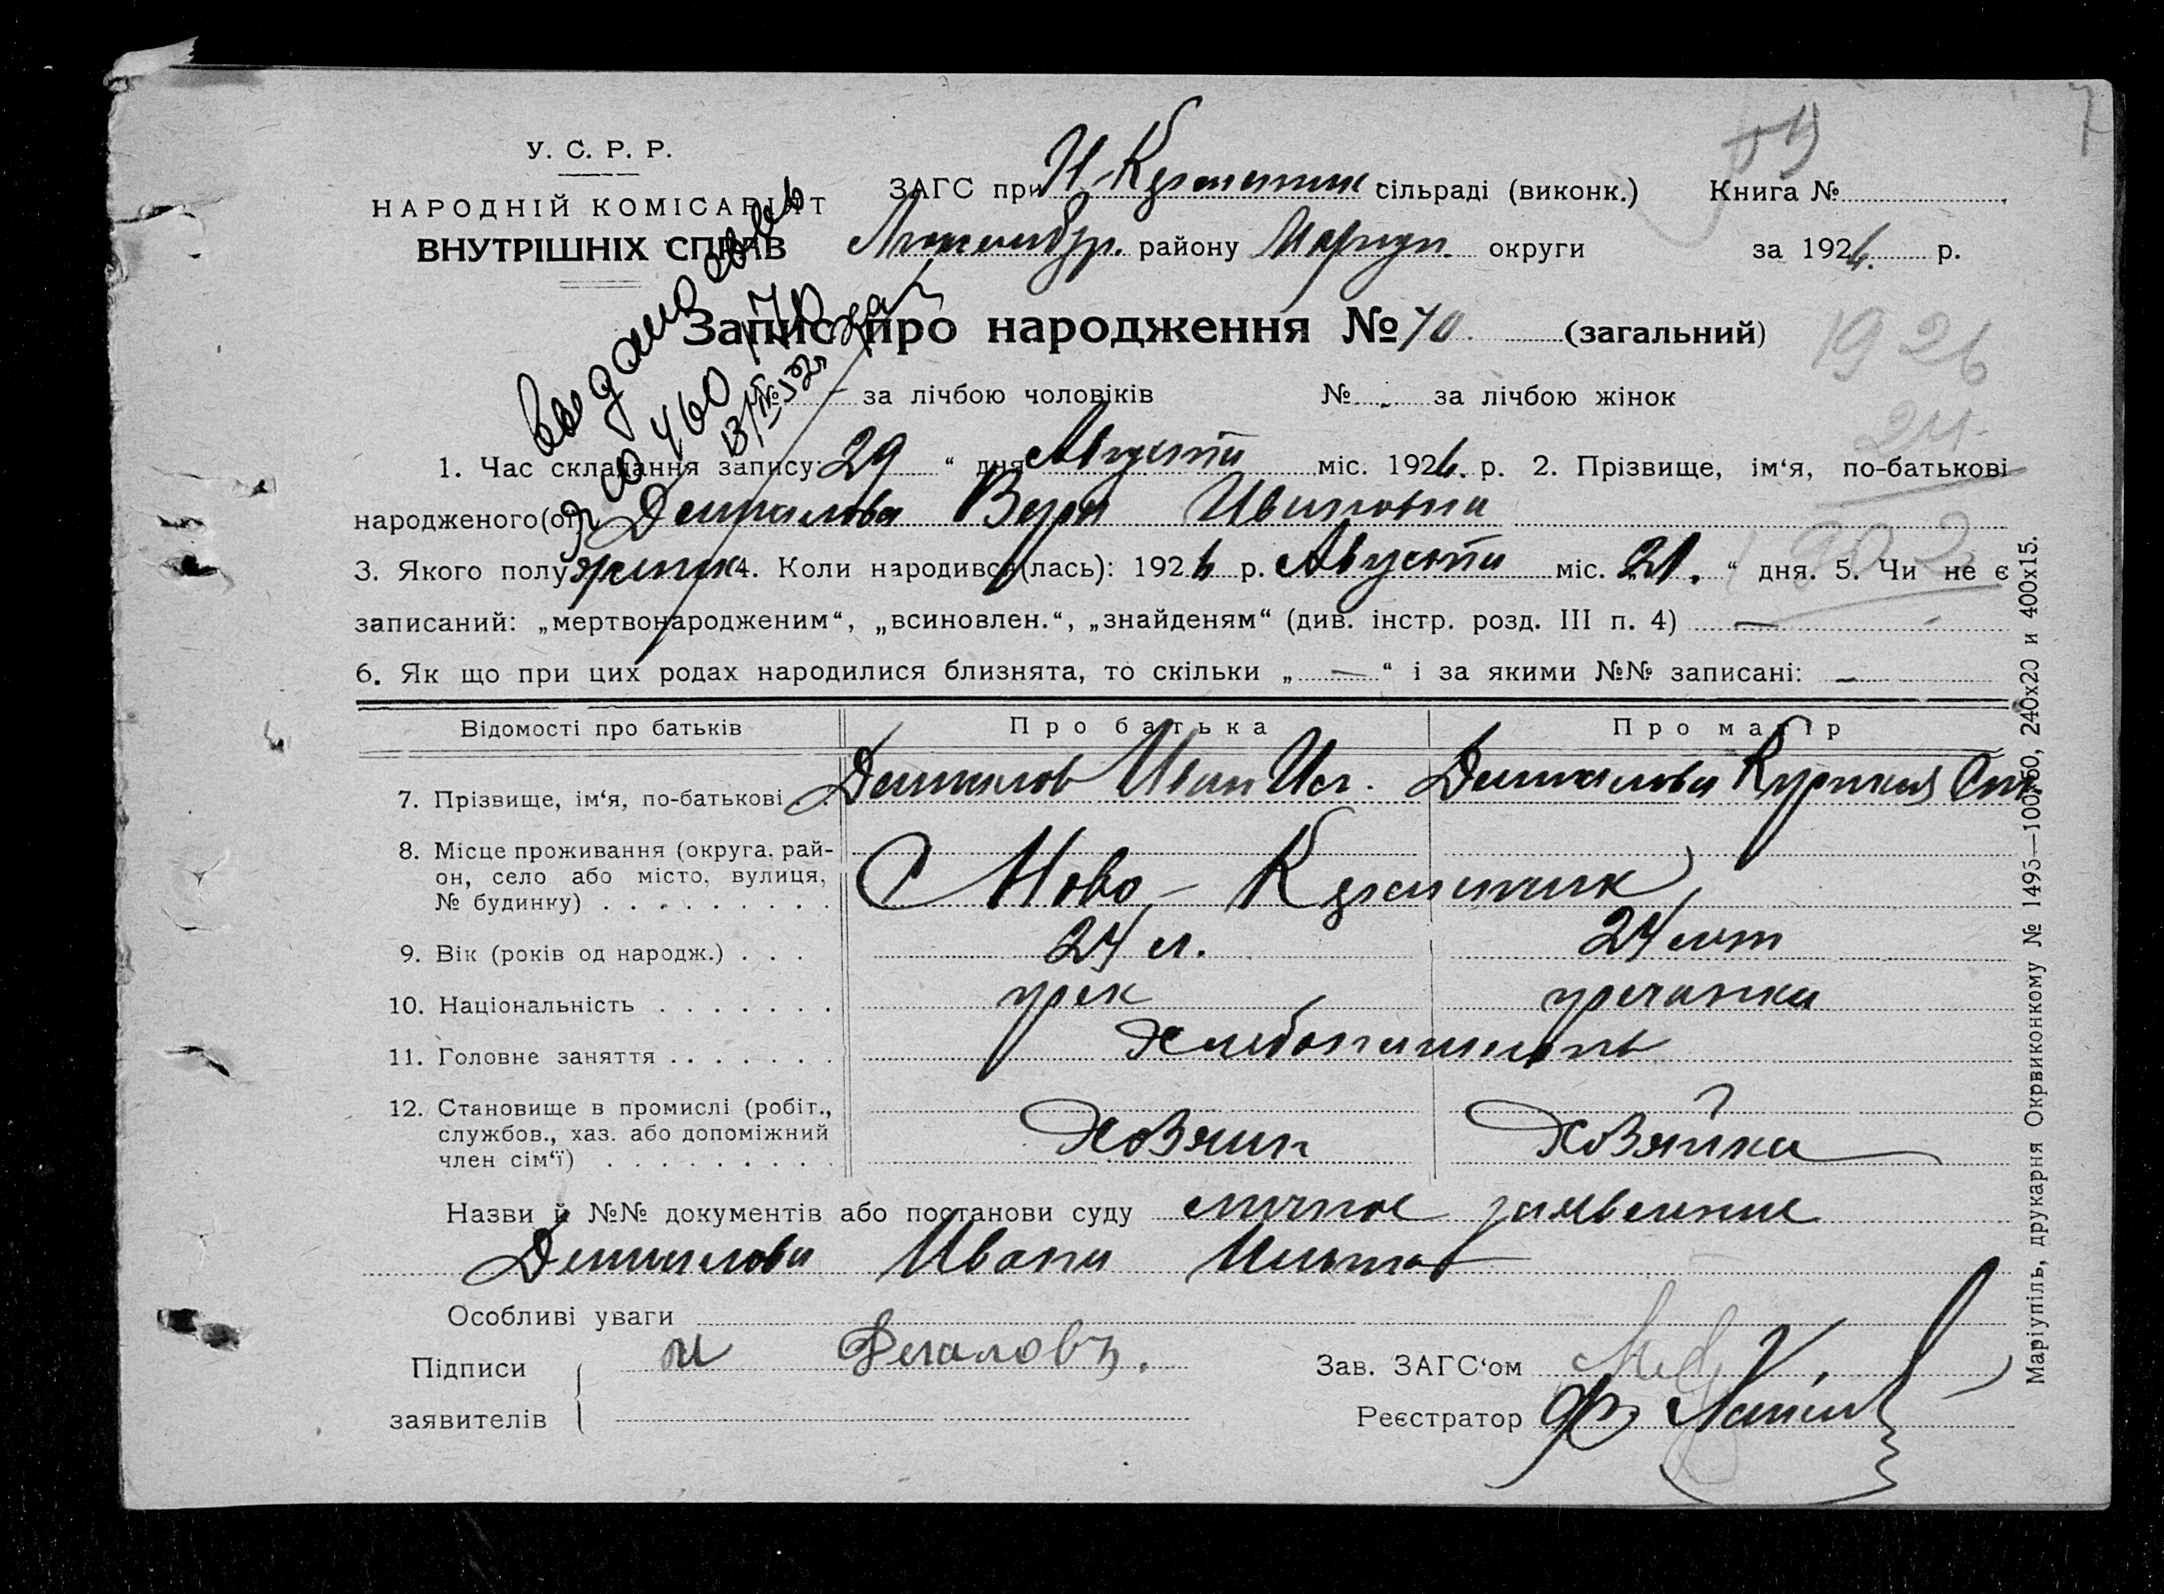 7
У. С. Р. Р.
НАРОДНІЙ КОМІСАРІЯТ
ВНУТРІШНІХ СПРАВ
ЗАГС при Н-Керменчик сільраді (виконк.) Книга №
району Мариуп. округи за 1926. р.
Запис про народження № 70 (загальний)
1926
№ за лічбою чоловіків № - за лічбою жінок
24
1. Час складання запису: 29 “ дня Августа міс. 1926. р. 2. Прізвище, ім‘я, по-батькові
народженого(ої) Вера Ивановна
1902
3. Якого полу женск 4. Коли народивсь(лась): 1926 р. Августа міс. 21. “ дня. 5. Чи не є
записаний: „мертвонародженим“, „всиновлен.“, „знайденям“ (див. інстр. розд. III п. 4) —
6. Як що при цих родах народилися близнята, то скільки „ — “ і за якими №№ записані: —
Відомості про батьків Про батька Про матір
7. Прізвище, ім‘я, по-батькові Иван
8. Місце проживання (округа, рай-
он, село або місто, вулиця,
№ будинку) С Ново-Керменчик
9. Вік (років од народж.) 24 л. 24 лет
10. Національність грек гречанка
11. Головне заняття хлебопашець
12. Становище в промислі (робіт.,
службов., хаз. або допоміжний
член сім‘ї) Хозяин Хозяйка
Назви й №№ документів або постанови суду личное заявление
Ивана
Особливі уваги
Підписи и
заявителів
Зав. ЗАГС‘ом
Реєстратор
Маріупіль, друкарня Окрвиконкому № 1495—100×50, 240х20 и 400х15.